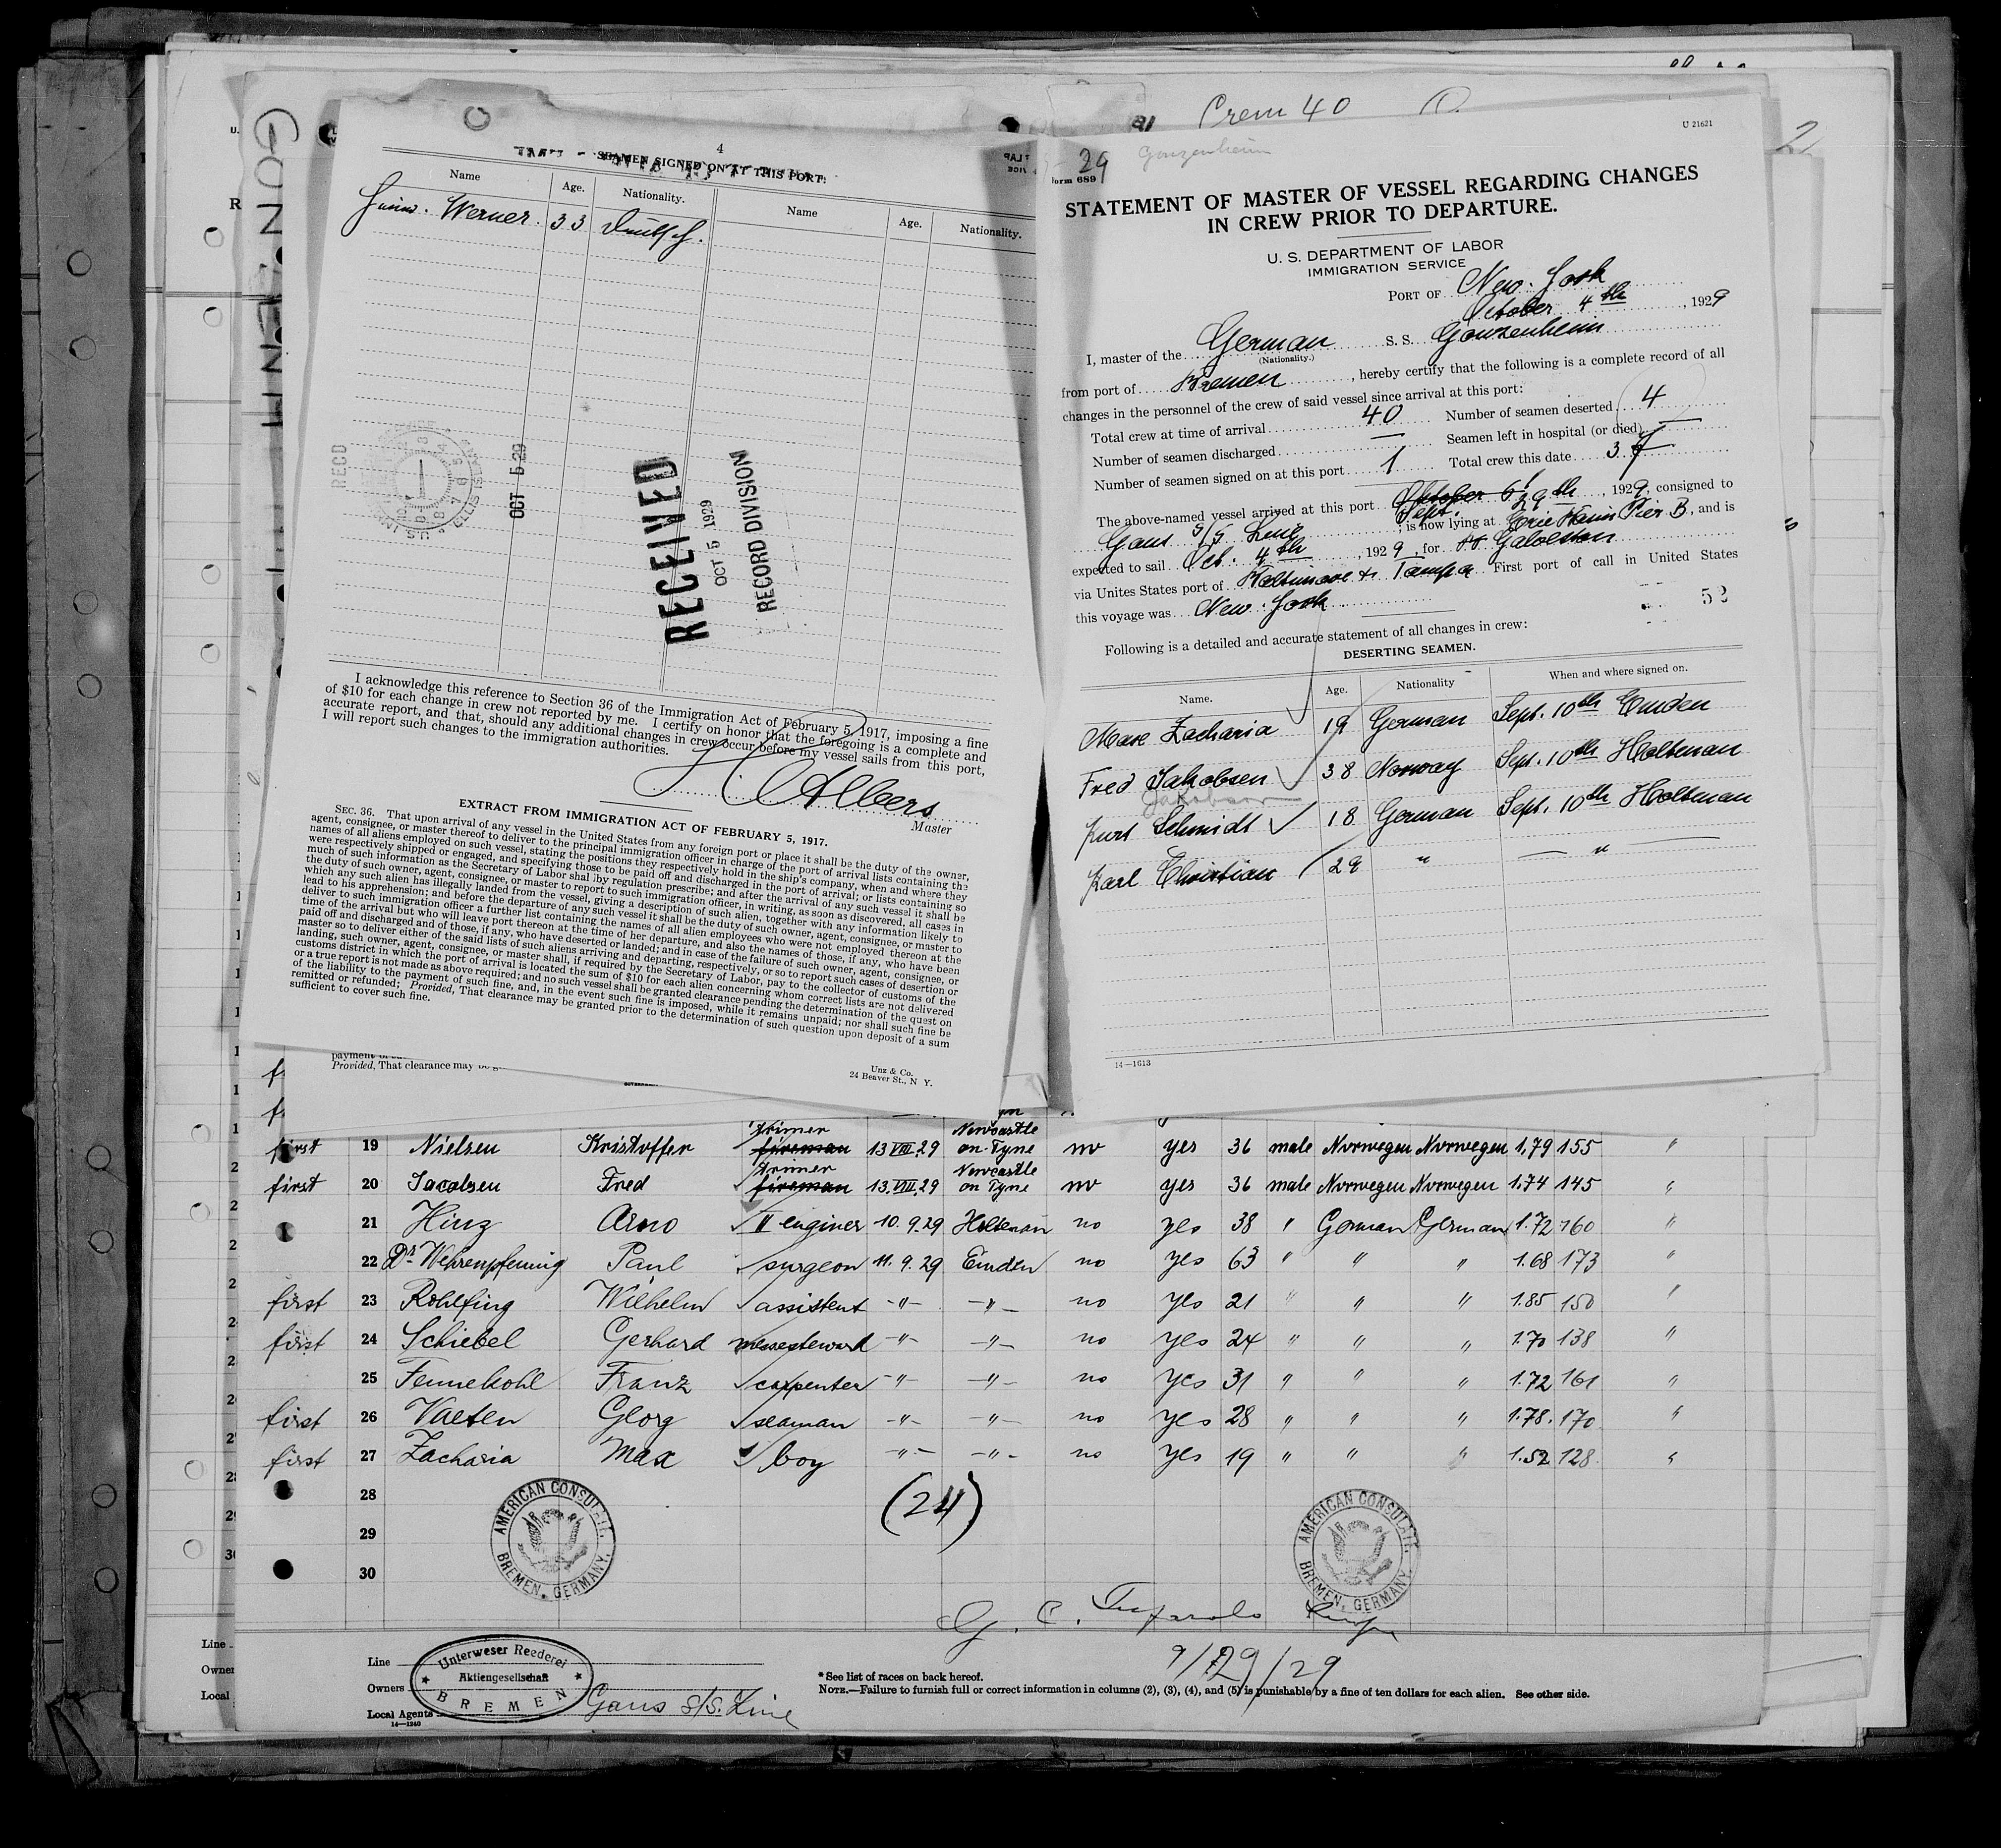 4
SEAMEN SIGNED ON AT THIS PORT:
Name Age. Nationality. Name Age. Nationality.
Werner. 33 Deutsch.
RECD
OCT 5 29
RECEIVED
OCT 5 1929
RECORD DIVISION
I acknowledge this reference to Section 36 of the Immigration Act of February 5, 1917, imposing a fine
of $10 for each change in crew not reported by me. I certify on honor that the foregoing is a complete and
accurate report, and that, should any additional changes in crew occur before my vessel sails from this port,
I will report such changes to the immigration authorities.
H. Albers
Master
EXTRACT FROM IMMIGRATION ACT OF FEBRUARY 5, 1917.
SEC. 36. That upon arrival of any vessel in the United States from any foreign port or place it shall be the duty of the owner,
agent, consignee, or master thereof to deliver to the principal immigration officer in charge of the port of arrival lists containing the
names of all aliens employed on such vessel, stating the positions they respectively hold in the ship's company, when and where they
were respectively shipped or engaged, and specifying those to be paid off and discharged in the port of arrival; or lists containing so
much of such information as the Secretary of Labor shall by regulation prescribe; and after the arrival of any such vessel it shall be
the duty of such owner, agent, consignee, or master to report to such immigration officer, in writing, as soon as discovered, all cases in
which any such alien has illegally landed from the vessel, giving a description of such alien, together with any information likely to
lead to his apprehension; and before the departure of any such vessel it shall be the duty of such owner, agent, consignee, or master to
deliver to such immigration officer a further list containing the names of all alien employees who were not employed thereon at the
time of the arrival but who will leave port thereon at the time of her departure, and also the names of those, if any, who have been
paid off and discharged and of those, if any, who have deserted or landed; and in case of the failure of such owner, agent, consignee, or
master so to deliver either of the said lists of such aliens arriving and departing, respectively, or so to report such cases of desertion or
landing, such owner, agent, consignee, or master shall, if required by the Secretary of Labor, pay to the collector of customs of the
customs district in which the port of arrival is located the sum of $10 for each alien concerning whom correct lists are not delivered
or a true report is not made as above required; and no such vessel shall be granted clearance pending the determination of the quest on
of the liability to the payment of such fine, and, in the event such fine is imposed, while it remains unpaid; nor shall such fine be
remitted or refunded; Provided, That clearance may be granted prior to the determination of such question upon deposit of a sum
sufficient to cover such fine.
Provided, That clearance may
Unz & Co.
24 Beaver St., N Y.
Crem 40
Gonzenheim
29
Form 689
U 21621
STATEMENT OF MASTER OF VESSEL REGARDING CHANGES
IN CREW PRIOR TO DEPARTURE.
U. S. DEPARTMENT OF LABOR
IMMIGRATION SERVICE
PORT OF New-York
October 4th, 1929
I, master of the German S. S. Gonzenheim
(Nationality.)
from port of Bremen, hereby certify that the following is a complete record of all
changes in the personnel of the crew of said vessel since arrival at this port:
Total crew at time of arrival 40 Number of seamen deserted 4
Number of seamen discharged — Seamen left in hospital (or died) —
Number of seamen signed on at this port 1 Total crew this date 37
The above-named vessel arrived at this port October 6 Sept. 29th, 1929, consigned to
Gans S/S Line; is now lying at Erie Basin Pier B, and is
expected to sail Oct. 4th, 1929, for Galveston
via Unites States port of Baltimore & Tampa First port of call in United States
this voyage was New-York.
52
Following is a detailed and accurate statement of all changes in crew:
DESERTING SEAMEN.
Name. Age. Nationality When and where signed on.
Max Zacharia 19 German Sept. 10th Emden
Fred Jakobsen 38 Norway Sept. 10th Holtenau
Kurt Schmidt 18 German Sept. 10th Holtenau
Karl Christian 29 " — " —
14—1613
first 19 Nielsen Kristoffer trimer fireman 13 VIII 29 Newcastle on-Tyne no yes 36 male Norwegen Norwegen 1,79 155 "
first 20 Jacobsen Fred trimer fireman 13.VIII.29 Newcastle on Tyne no yes 36 male Norwegen Norwegen 1.74 145 "
21 Hinz Arno II enginer 10.9.29 Holtenau no yes 38 " German German 1.72 160 "
22 Dr. Wehrenpfennig Paul surgeon 11.9.29 Emden no yes 63 " " " 1.68 173 "
first 23 Rohlfing Wilhelm assistent -"- -"- no yes 21 " " " 1.85 150 "
first 24 Schiebel Gerhard messesteward -"- -"- no yes 24 " " " 1.70 138 "
25 Fennekohl Franz carpenter -"- -"- no yes 31 " " " 1.72 161 "
first 26 Vaeten Georg seaman -"- -"- no yes 28 " " " 1.78. 170 "
first 27 Zacharia Max boy -"- -"- no yes 19 " " " 1.52 128 "
28
29
30
(24)
AMERICAN CONSULATE. BREMEN, GERMANY.
AMERICAN CONSULATE. BREMEN, GERMANY.
9/29/29
Line
Owners
Local Agents Gans S/S. Line
14—1240
Unterweser Reederei
Aktiengesellschaft
BREMEN
*See list of races on back hereof.
NOTE.—Failure to furnish full or correct information in columns (2), (3), (4), and (5) is punishable by a fine of ten dollars for each alien. See other side.
Line
Owner
Local